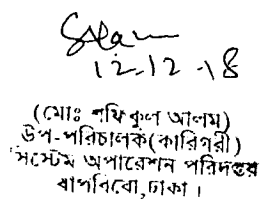 12.12.18
(মোঃ শফিকুল আলম)
উপ-পরিচালক(কারিগরী)
সিস্টেম অপারেশন পরিদপ্তর
বাপবিবো,ঢাকা।